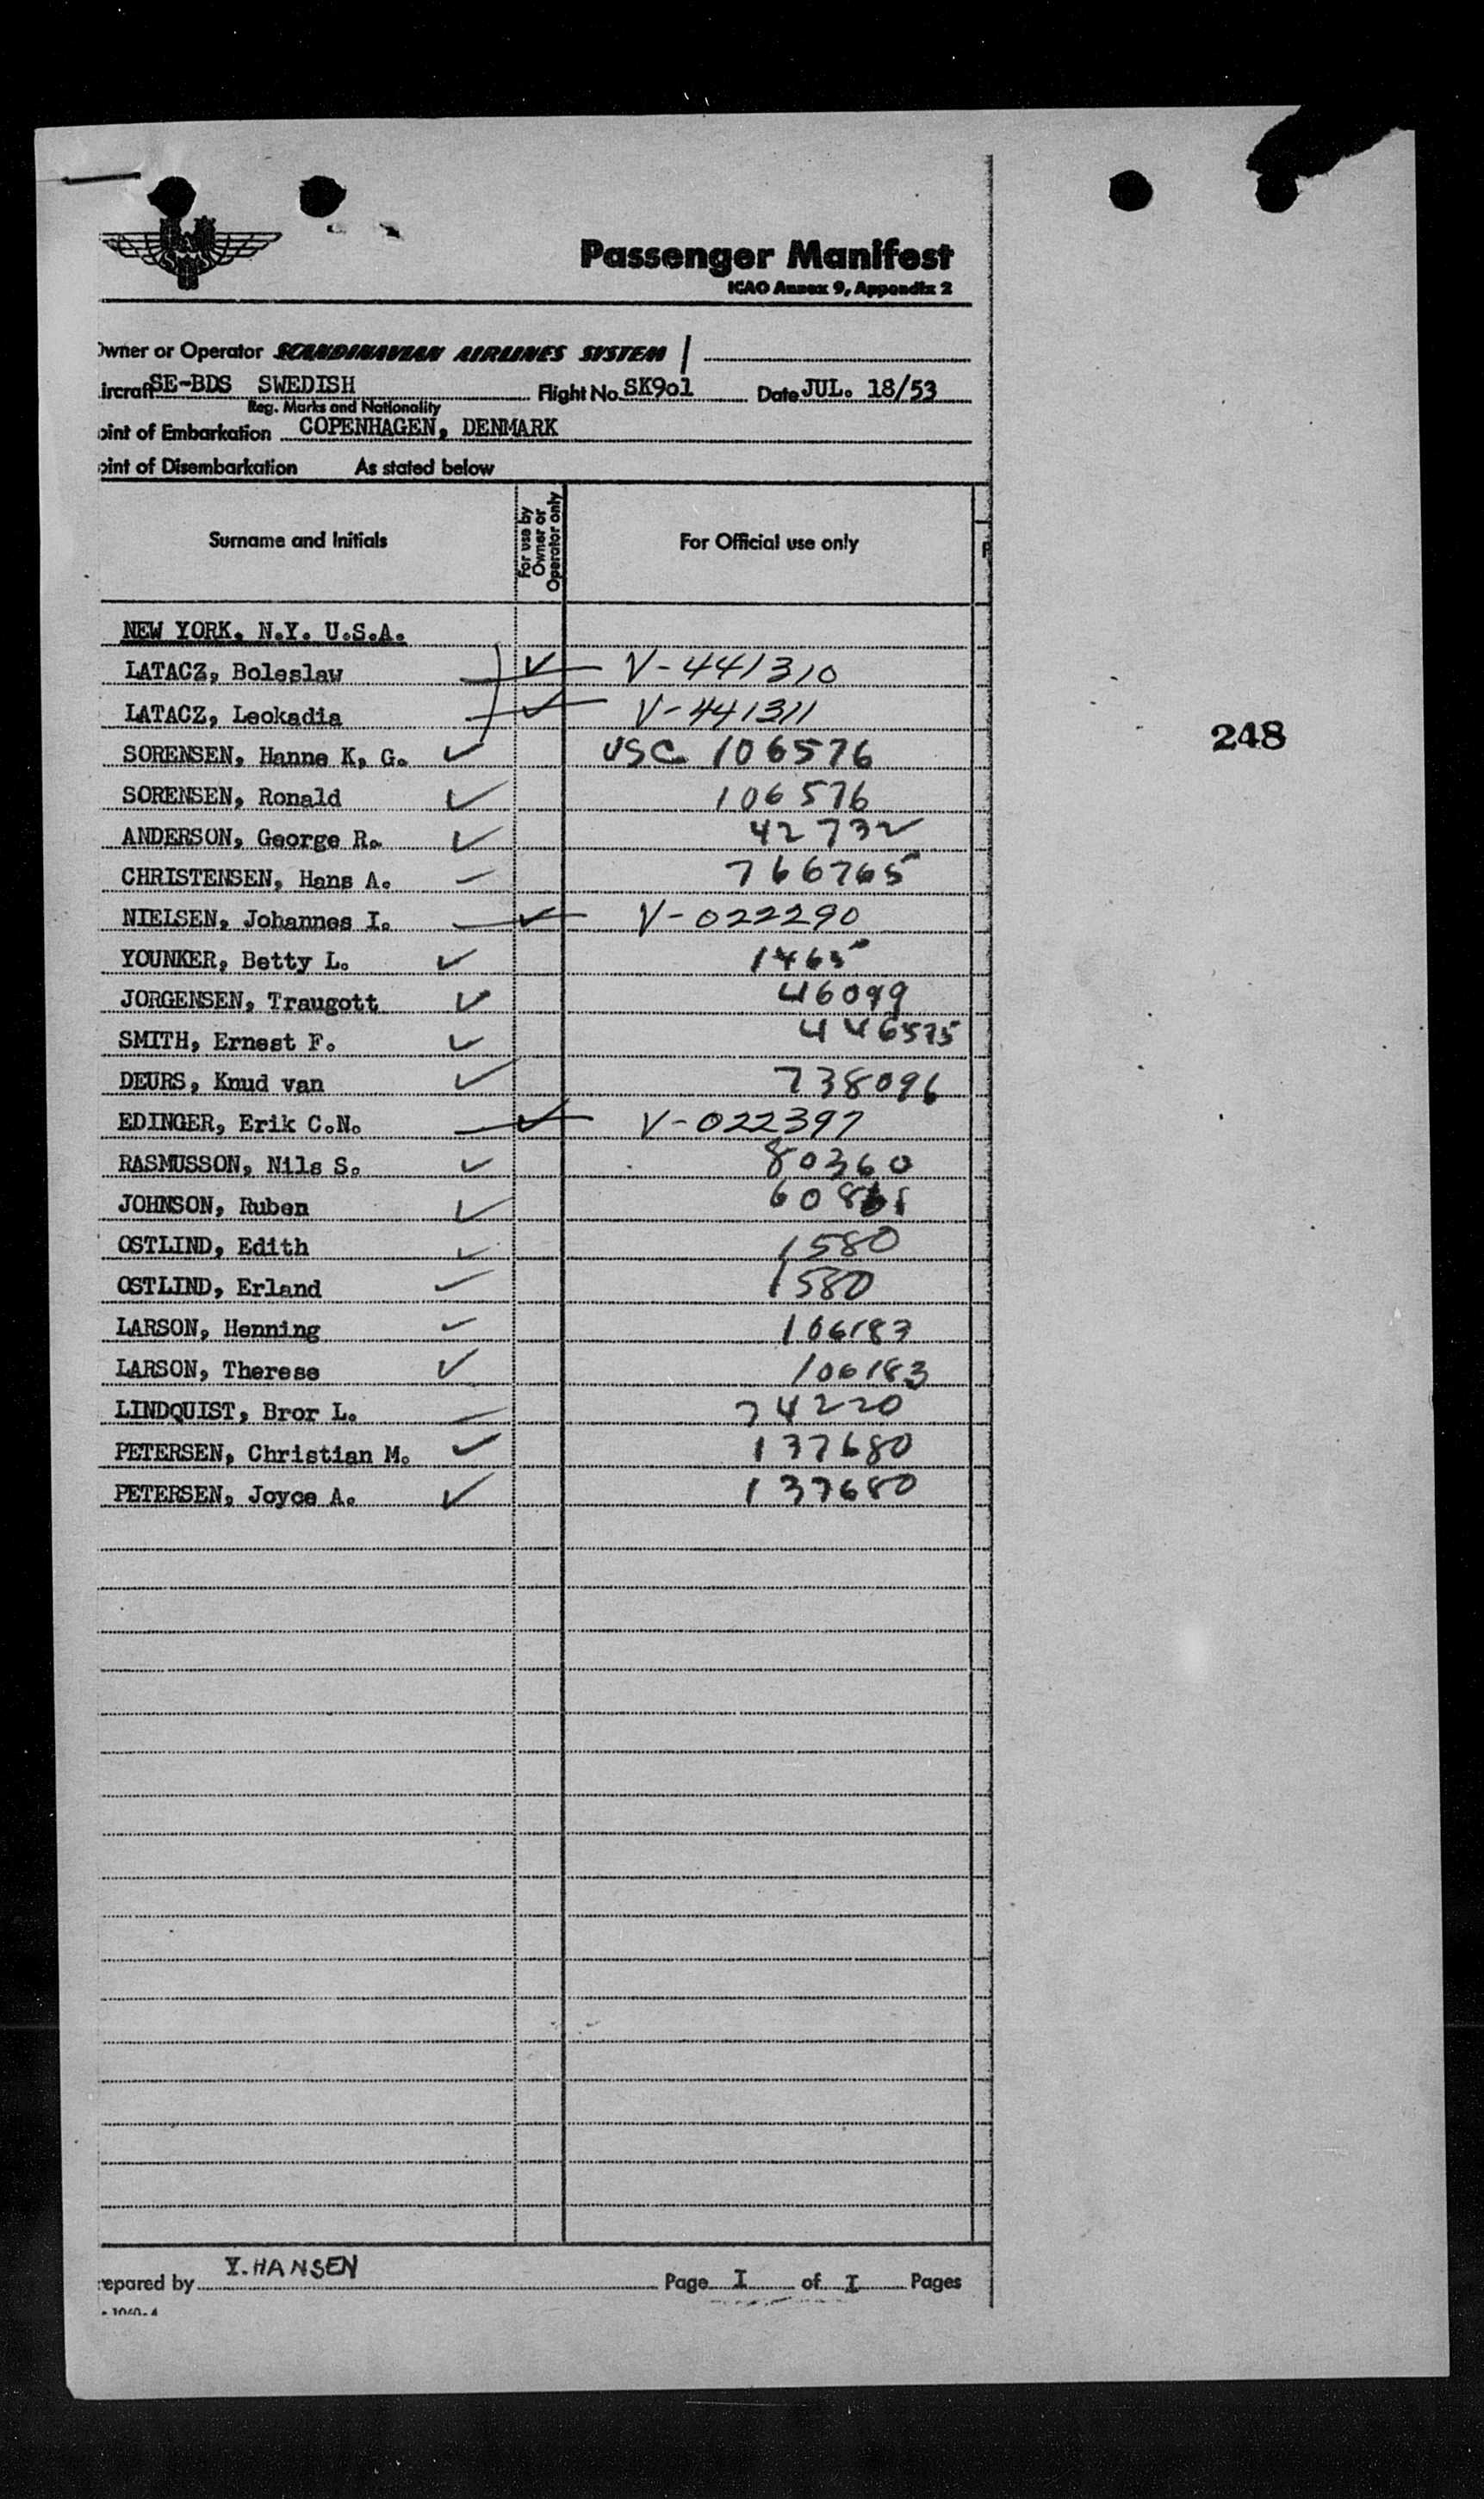 Passenger Manifest
ICAO Annex 9, Appendix 2
Owner or Operator SCANDINAVIAN AIRLINES SYSTEM
ircraft SE-BDS SWEDISH Flight No. SK901 Date JUL. 18/53
Reg. Marks and Nationality
oint of Embarkation COPENHAGEN, DENMARK
oint of Disembarkation As stated below
Surname and Initials For use by Owner or Operator only For Official use only
NEW YORK, N.Y. U.S.A.
LATACZ, Boleslaw V-441310
LATACZ, Leokadia V-441311
SORENSEN, Hanne K, G. USC 106576
248
SORENSEN, Ronald 106576
ANDERSON, George R. 42732
CHRISTENSEN, Hans A. 766765
NIELSEN, Johannes I. V-022290
YOUNKER, Betty L. 1465
JORGENSEN, Traugott 46099
SMITH, Ernest F. 446575
DEURS, Knud van 738096
EDINGER, Erik C.N. V-022397
RASMUSSON, Nils S. 80360
JOHNSON, Ruben
OSTLIND, Edith 1580
OSTLIND, Erland 1580
LARSON, Henning 106183
LARSON, Therese 106183
LINDQUIST, Bror L. 74220
PETERSEN, Christian M. 137680
PETERSEN, Joyce A. 137680
repared by Y. HANSEN Page I of I Pages